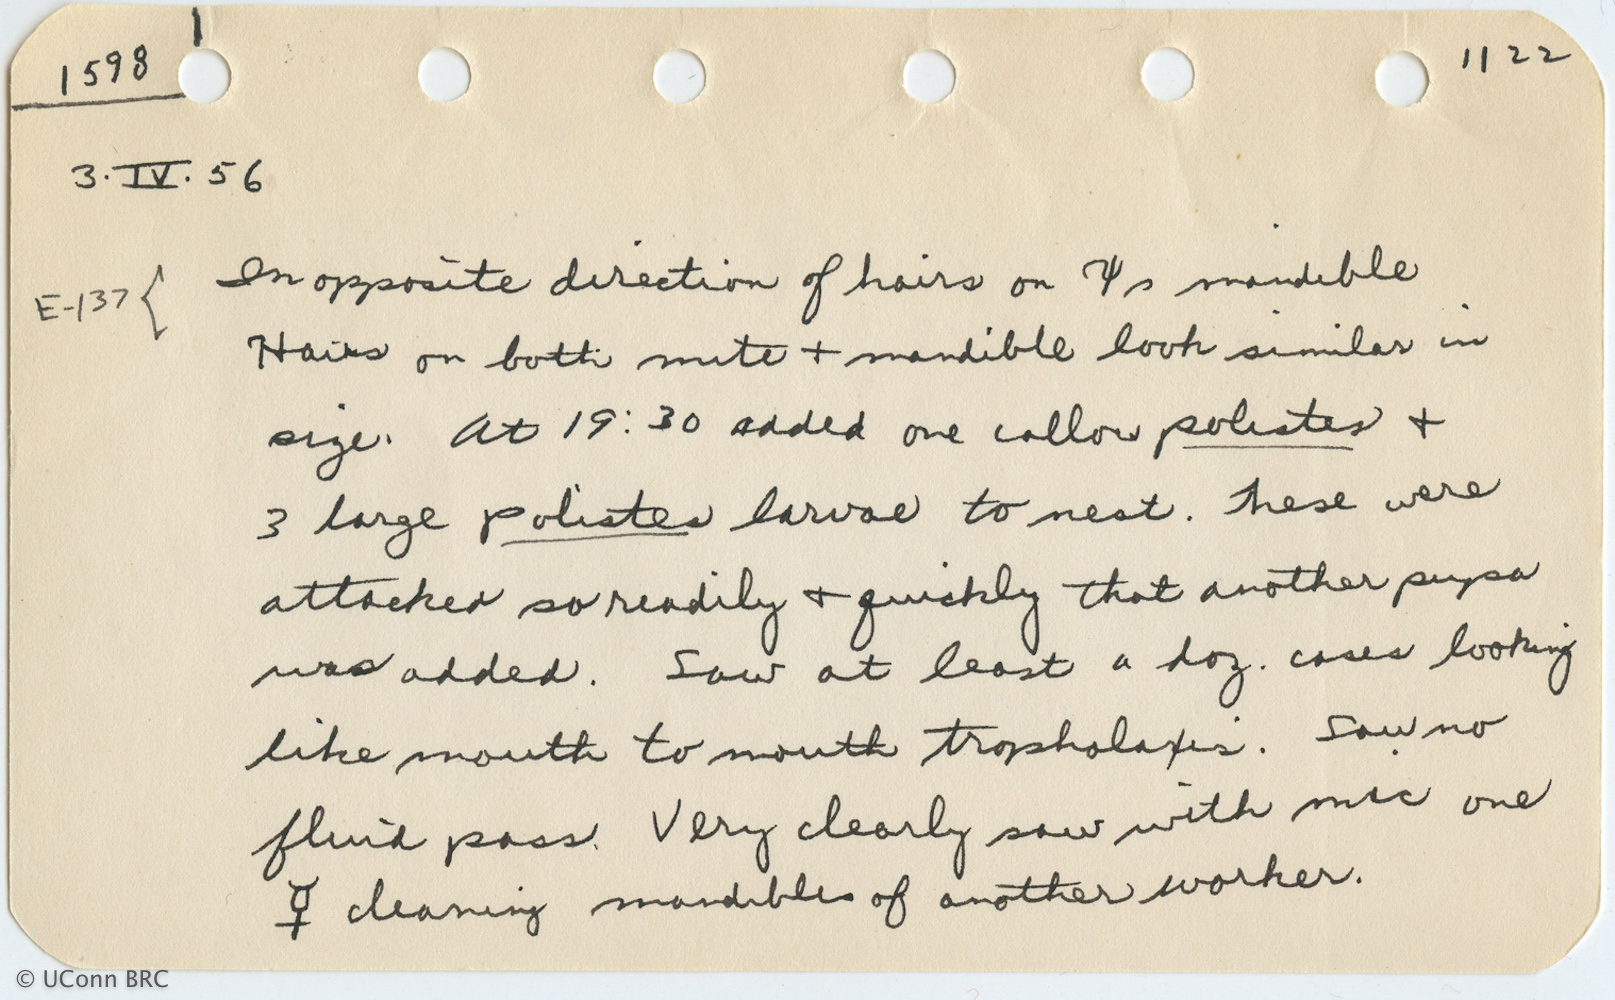 1598
1122
3.IV.56
E-137 {
In opposite direction of hairs on ☿s mandible
Hairs on both mite + mandible look similar in
size. At 19:30 added one callow polistes +
3 large polistes larvae to nest. These were
attacked so readily + quickly that another pupa
was added. Saw at least a doz. cases looking
like mouth to mouth tropholaxis. Saw no
fluid pass. Very clearly saw with mic one
☿ cleaning mandibles of another worker.
© UConn BRC